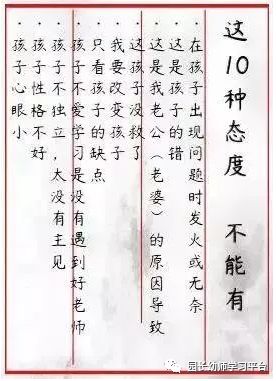 这10种态度 不能有
·在孩子出现问题时发火或无奈
·这是孩子的错
·这是我老公（老婆）的原因导致
·这孩子没救了
·我要改变孩子
·只看孩子的缺点
·孩子不爱学习是没有遇到好老师
·孩子不独立，太没有主见
·孩子性格不好
·孩子心眼小
园长幼师学习平台